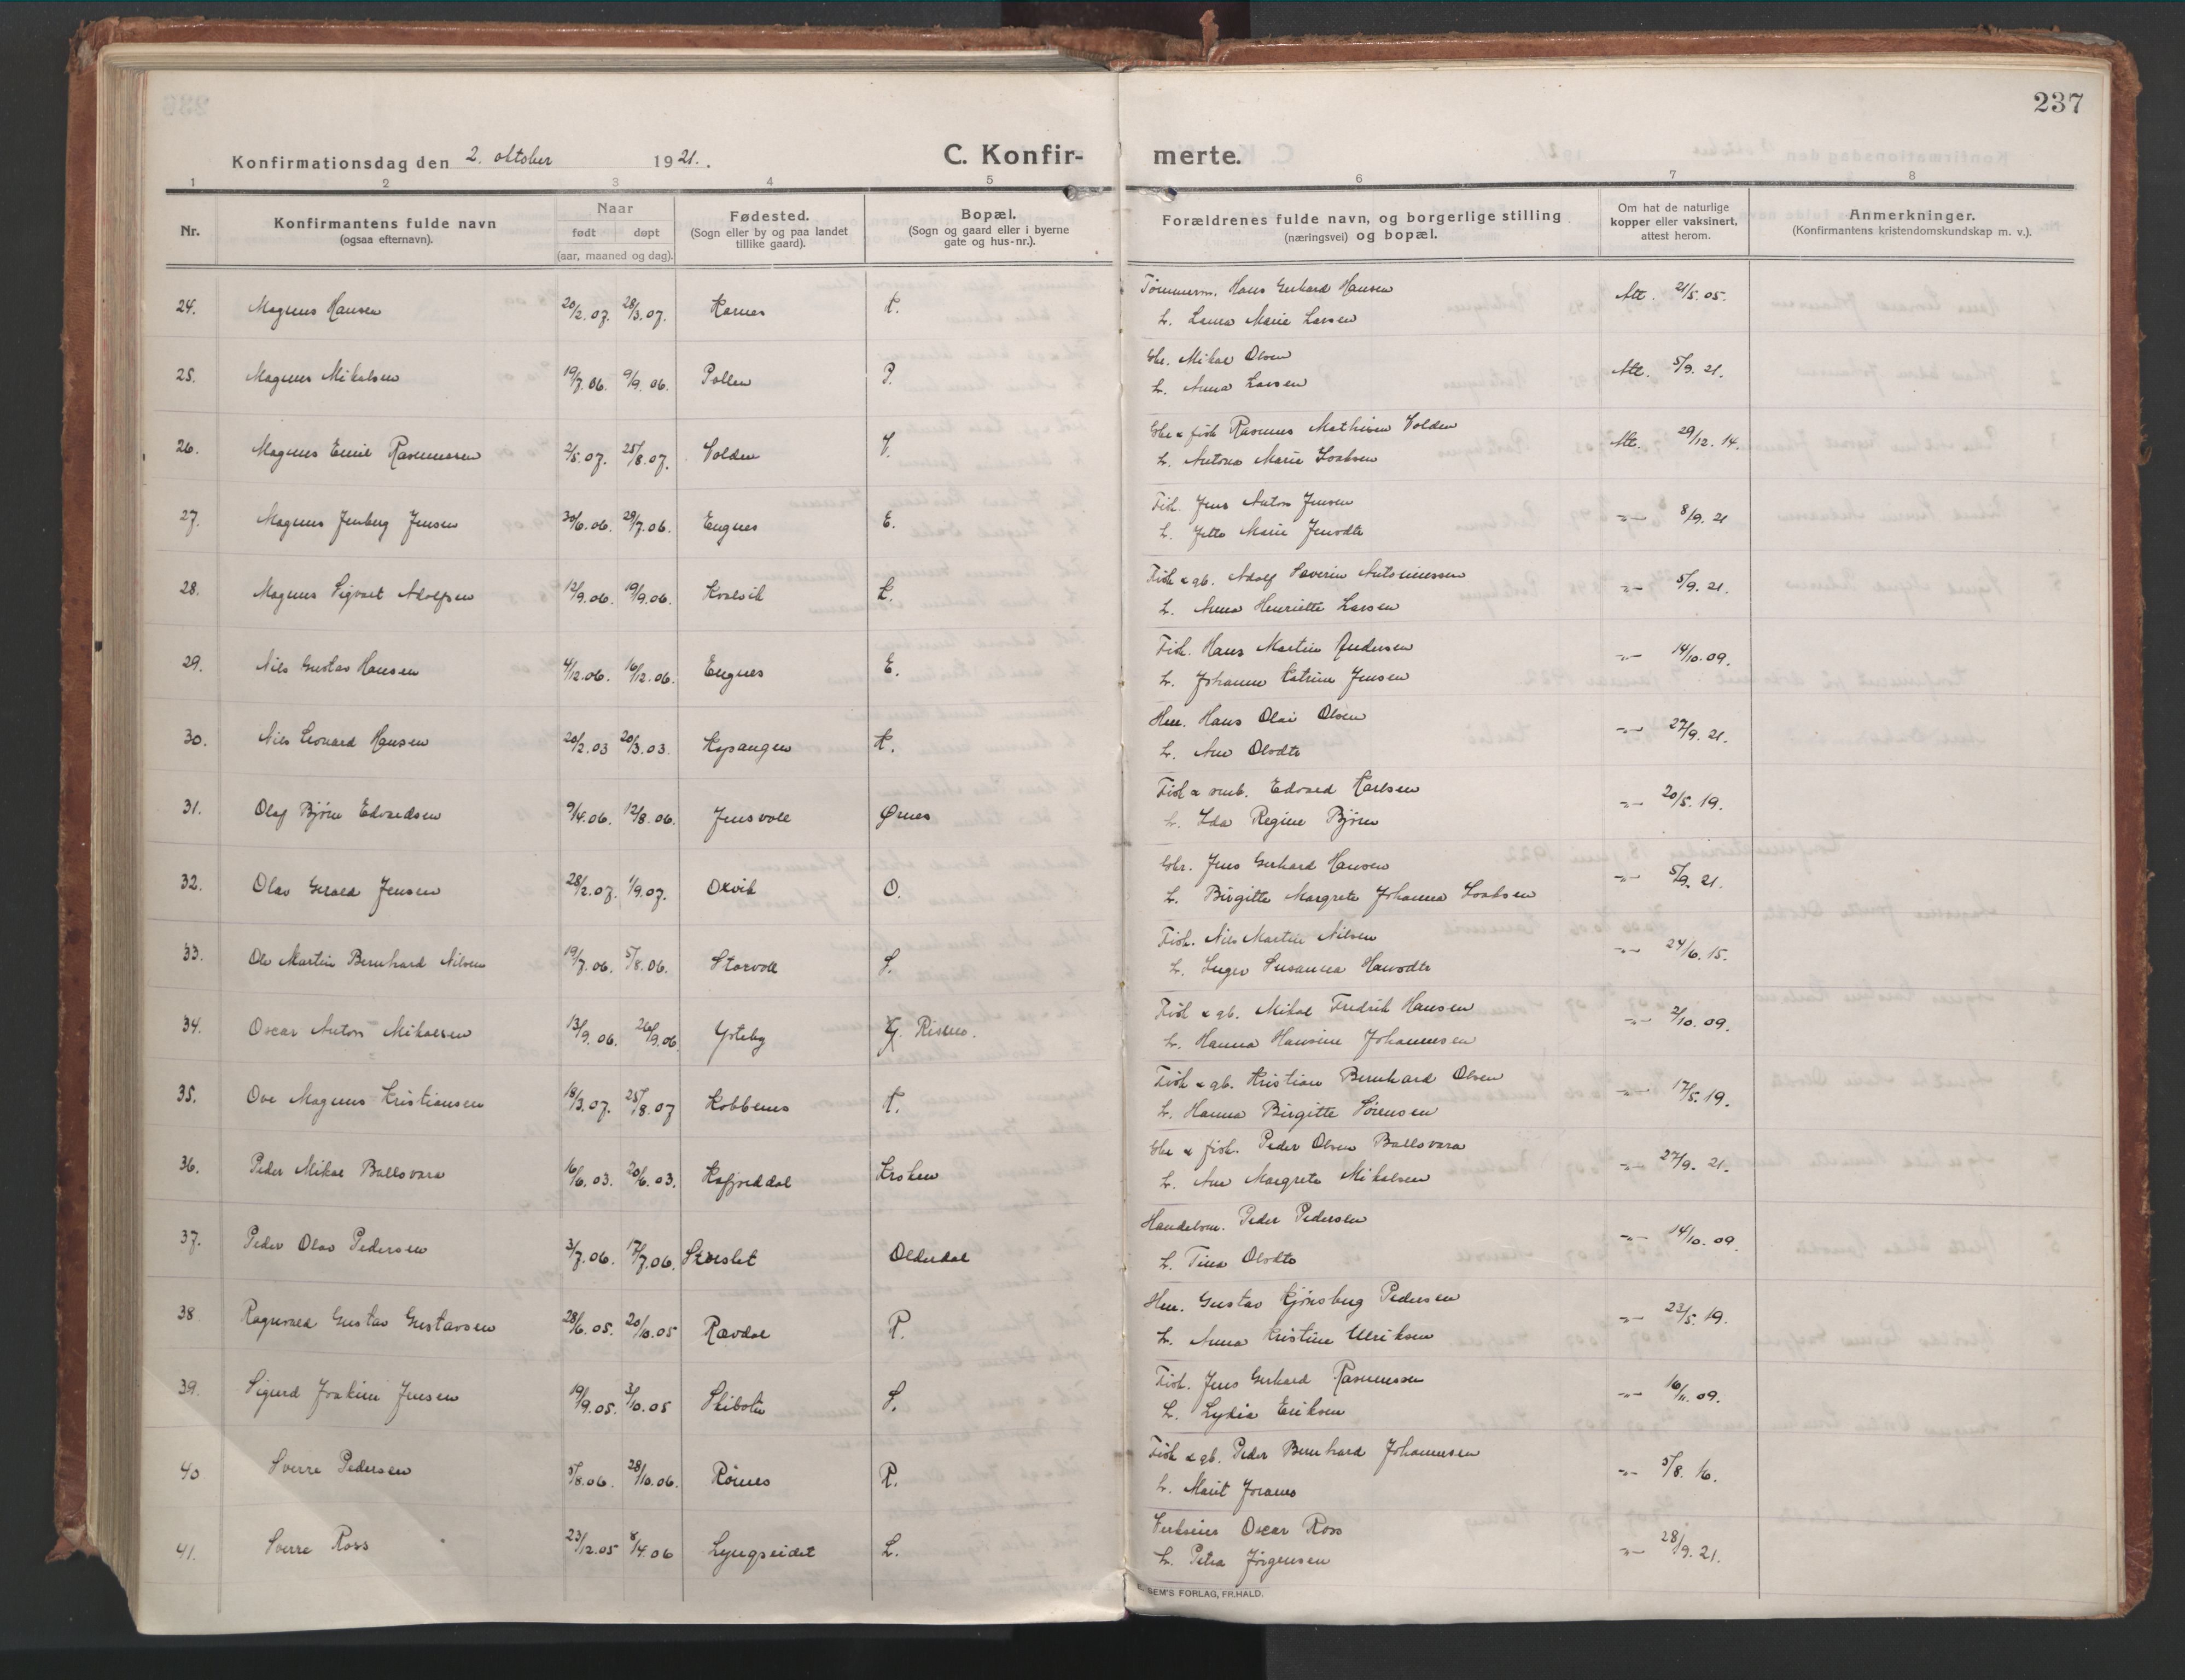 237
Konfirmationsdag den 2. oktober 1921.
C. Konfirmerte.
1 2 3 4 5 6 7 8
Nr.
Konfirmantens fulde navn
(ogsaa efternavn).
Naar
født døpt
(aar, maaned og dag).
Fødested.
(Sogn eller by og paa landet
tillike gaard).
Bopæl.
(Sogn og gaard eller i byerne
gate og hus-nr.).
Forældrenes fulde navn, og borgerlige stilling
(næringsvei) og bopæl.
Om hat de naturlige
kopper eller vaksinert,
attest herom.
Anmerkninger.
(Konfirmantens kristendomskundskap m. v.).
24. Magnus Hansen 20/2.07. 28/3.07. Karnes K. Tømmerm. Hans Gerhard Hansen Att. 21/5.05.
L. Laura Marie Larsen
25. Magnus Mikalsen 19/7.06. 9/9.06. Pollen P. Gbr. Mikal Olsen Att. 5/9.21.
L. Anna Larsen
26. Magnus Emil Rasmussen 2/5.07. 25/8.07. Volden V. Gbr & fisk Rasmus Mathisen Volden Att. 29/12.14.
L. Antona Marie Isaksen
27. Magnus Jenberg Jensen 30/6.06. 29/7.06. Engnes E. Fisk. Jens Anton Jensen -"- 8/9.21
L. Jette Marie Jensdtr
28. Magnus Sigvart Adolfsen 12/9.06. 19/9.06. Kvalvik K. Fisk & gb. Adolf Severin Antoniussen -"- 5/9.21.
L. Anna Henriette Larsen
29. Nils Gustav Hansen 4/12.06. 16/12.06. Engnes E. Fisk. Hans Martin Andersen -"- 14/10.09.
L. Johanne Katrine Jensen
30. Nils Leonard Hansen 20/2.03 20/3.03. Kopangen K. Hans Olai Olsen -"- 27/9.21.
L. Ane Olsdtr
31. Olaf Bjørn Edvardsen 9/4.06. 12/8.06. Jensvoll Ørnes Fisk & Edvard Karlsen -"- 20/5.19.
L. Ida Regine Bjørn
32. Olav Gerald Jensen 28/2.07. 1/9.07. Oxvik O. Gbr. Jens Gerhard Hansen -"- 5/9.21.
L. Birgitte Margrete Johanna Isaksen
33. Ole Martin Bernhard Nilsen 19/7.06. 5/8.06. Storvoll S. Fisk. Nils Martin Nilsen -"- 24/6.15.
L. Inger Susanna Hansdtr
34. Oscar Anton Mikalsen 13/9.06. 26/9.06. Ysteby Y. Fisk & gb. Mikal Fredrik Hansen -"- 2/10.09.
L. Hanna Hansine Johannesen
35. Ove Magnus Kristiansen 18/3.07. 25/8.07 Kobbenes K. Fisk & gb. Kristian Bernhard Olsen -"- 17/5.19.
L. Hanna Birgitte Sørensen
36. Peder Mikal Ballovara 16/6.03. 20/6.03. Kafjorddal Kroken Gbr & fisk. Peder Olsen Ballovara -"- 27/9.21.
L. Ane Margrete Mikalsen
37. Peder Olav Pedersen 3/7.06. 17/7.06. Skorslet Olderdal Handelsm. Peder Pedersen -"- 14/10.09.
L. Tina Olsdtr
38. Ragnvald Gustav Gustavsen 28/6.05. 20/10.05 Rævdal R. Gustav Kjønsberg Pedersen -"- 23/5.19.
L. Anna Kristine Ulriksen
39. Sigurd Joakim Jensen 19/9.05. 3/10.05 Skibotn S. Fisk. Jens Gerhard Rasmussen -"- 16/11.09.
L. Lydia Eriksen
40 Sverre Pedersen 5/8.06. 28/10.06. Rørnes R. Fisk & gb. Peder Bernhard Johannesen -"- 5/8.16.
L. Marit
41. Sverre Ross 23/12.05 8/4.06 Lyngseidet L. Oscar Ross -"- 28/9.21.
L. Petra Jørgensen
SEM'S FORLAG, FR.HALD.